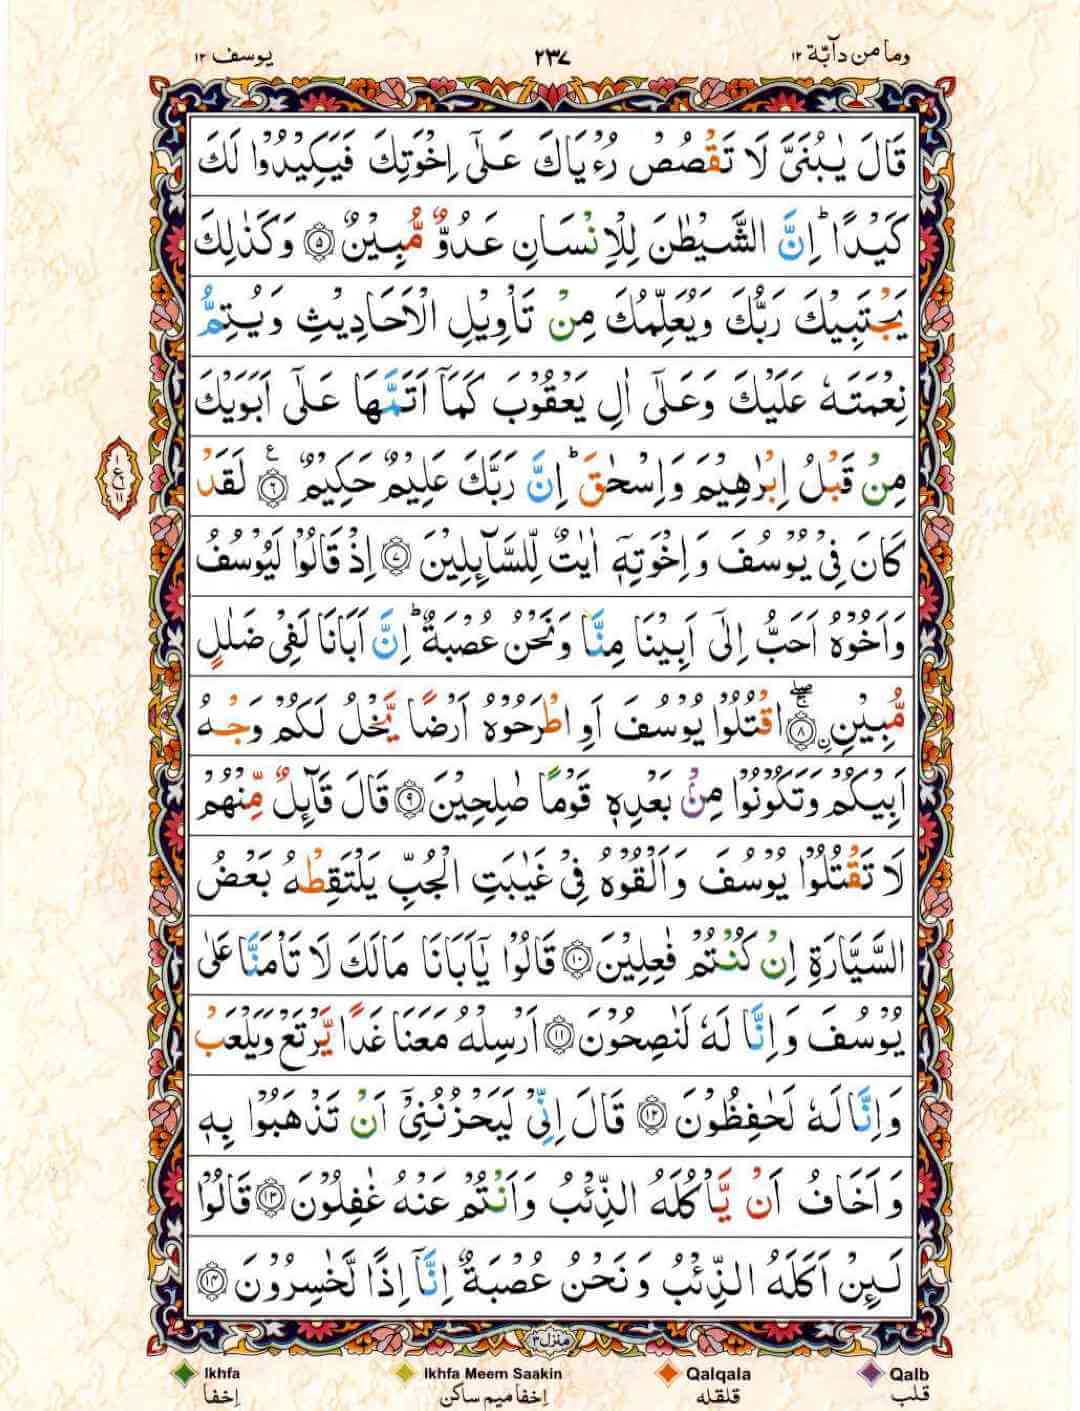 وما من دآبّة ١٢
٢٣٧
يوسف ١٢
قَالَ يٰبُنَىَّ لَا تَقْصُصْ رُءْيَاكَ عَلٰٓى اِخْوَتِكَ فَيَكِيْدُوْا لَكَ
كَيْدًا ؕ اِنَّ الشَّيْطٰنَ لِلْاِنْسَانِ عَدُوٌّ مُّبِيْنٌ ۝۵ وَكَذٰلِكَ
يَجْتَبِيْكَ رَبُّكَ وَيُعَلِّمُكَ مِنْ تَاْوِيْلِ الْاَحَادِيْثِ وَيُتِمُّ
نِعْمَتَهٗ عَلَيْكَ وَعَلٰٓى اٰلِ يَعْقُوْبَ كَمَاۤ اَتَمَّهَا عَلٰٓى اَبَوَيْكَ
مِنْ قَبْلُ اِبْرٰهِيْمَ وَاِسْحٰقَ ؕ اِنَّ رَبَّكَ عَلِيْمٌ حَكِيْمٌ ۝۶ ع لَقَدْ
كَانَ فِيْ يُوْسُفَ وَاِخْوَتِهٖۤ اٰيٰتٌ لِّلسَّآئِلِيْنَ ۝۷ اِذْ قَالُوْا لَيُوْسُفُ
وَاَخُوْهُ اَحَبُّ اِلٰٓى اَبِيْنَا مِنَّا وَنَحْنُ عُصْبَةٌ ؕ اِنَّ اَبَانَا لَفِيْ ضَلٰلٍ
مُّبِيْنِ ۝۸ ۨاقْتُلُوْا يُوْسُفَ اَوِ اطْرَحُوْهُ اَرْضًا يَّخْلُ لَكُمْ وَجْهُ
اَبِيْكُمْ وَتَكُوْنُوْا مِنْۢ بَعْدِهٖ قَوْمًا صٰلِحِيْنَ ۝۹ قَالَ قَآئِلٌ مِّنْهُمْ
لَا تَقْتُلُوْا يُوْسُفَ وَاَلْقُوْهُ فِيْ غَيٰبَتِ الْجُبِّ يَلْتَقِطْهُ بَعْضُ
السَّيَّارَةِ اِنْ كُنْتُمْ فٰعِلِيْنَ ۝۱۰ قَالُوْا يٰٓاَبَانَا مَالَكَ لَا تَاْمَنَّا عَلٰى
يُوْسُفَ وَاِنَّا لَهٗ لَنٰصِحُوْنَ ۝۱۱ اَرْسِلْهُ مَعَنَا غَدًا يَّرْتَعْ وَيَلْعَبْ
وَاِنَّا لَهٗ لَحٰفِظُوْنَ ۝۱۲ قَالَ اِنِّيْ لَيَحْزُنُنِيْۤ اَنْ تَذْهَبُوْا بِهٖ
وَاَخَافُ اَنْ يَّاْكُلَهُ الذِّئْبُ وَاَنْتُمْ عَنْهُ غٰفِلُوْنَ ۝۱۳ قَالُوْا
لَئِنْ اَكَلَهُ الذِّئْبُ وَنَحْنُ عُصْبَةٌ اِنَّاۤ اِذًا لَّخٰسِرُوْنَ ۝۱۴
منزل ۳
Ikhfa Ikhfa Meem Saakin Qalqala Qalb
اِخفا اِخفا میم ساکن قلقلہ قلب